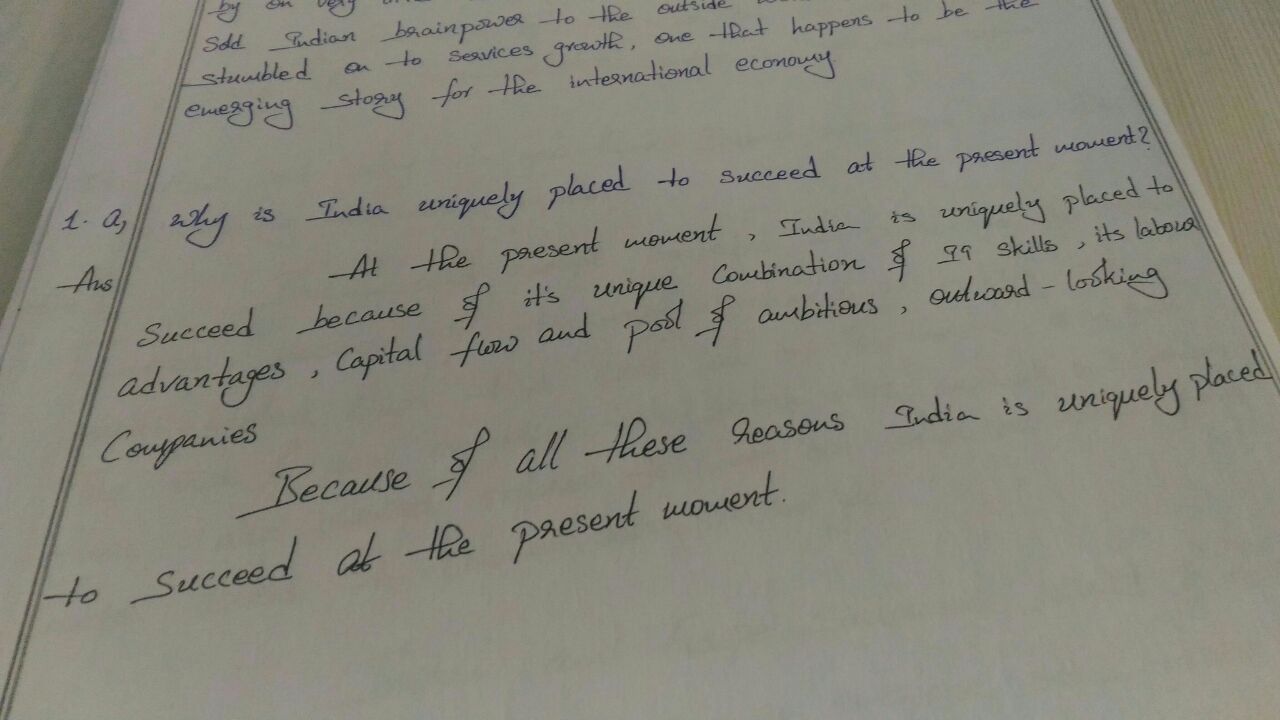 by on very
Sold Indian brainpower to the outside
stumbled on to services growth, one that happens to be the
emerging story for the international economy
1. a, Why is India uniquely placed to succeed at the present moment?
Ans At the present moment, India is uniquely placed to
Succeed because of it's unique Combination of skills, its labour
advantages, Capital flow and pool of ambitious, outward-looking
Companies
Because of all these reasons India is uniquely placed
to Succeed at the present moment.